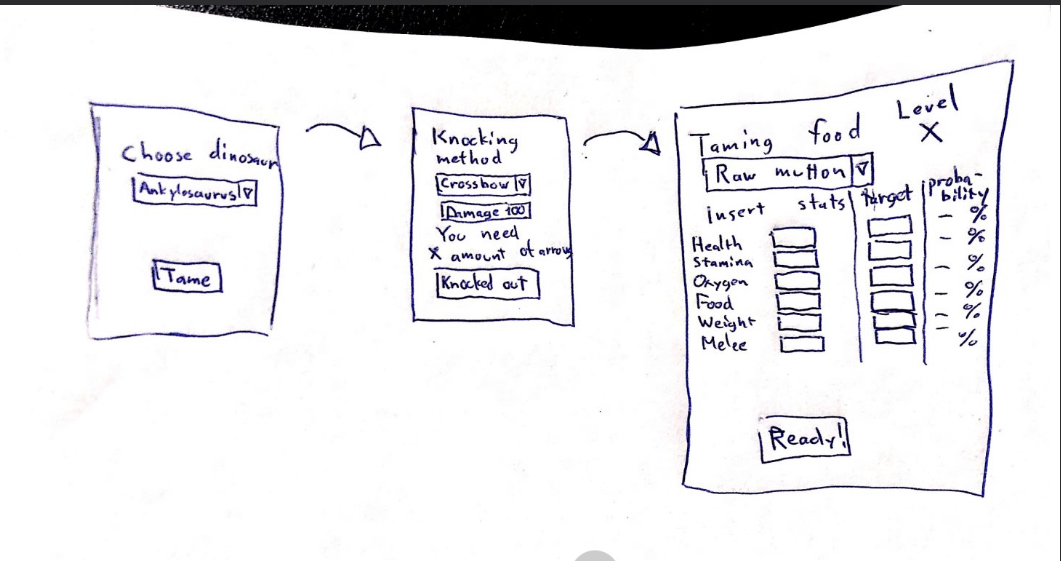 Choose dinosaur
Ankylosaurus
Tame
Knocking
method
Crossbow
Damage 100
You need
X amount of arrows
Knocked out
Level
X
Taming food
Raw mutton
insert stats
target
proba-
bility
Health
Stamina
Oxygen
Food
Weight
Melee
- %
- %
- %
- %
- %
- %
Ready!